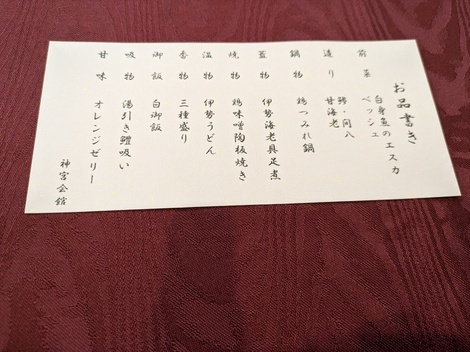 お品書き
前菜 白身魚のエスカ
ベッシュ
造り ・間八
甘海老
鍋物 鶏つみれ鍋
蓋物 伊勢海老具足煮
焼物 鶏味噌陶板焼き
温物 伊勢うどん
香物 三種盛り
御飯 白御飯
吸物 湯引き鱧吸い
甘味 オレンジゼリー
神宮会館